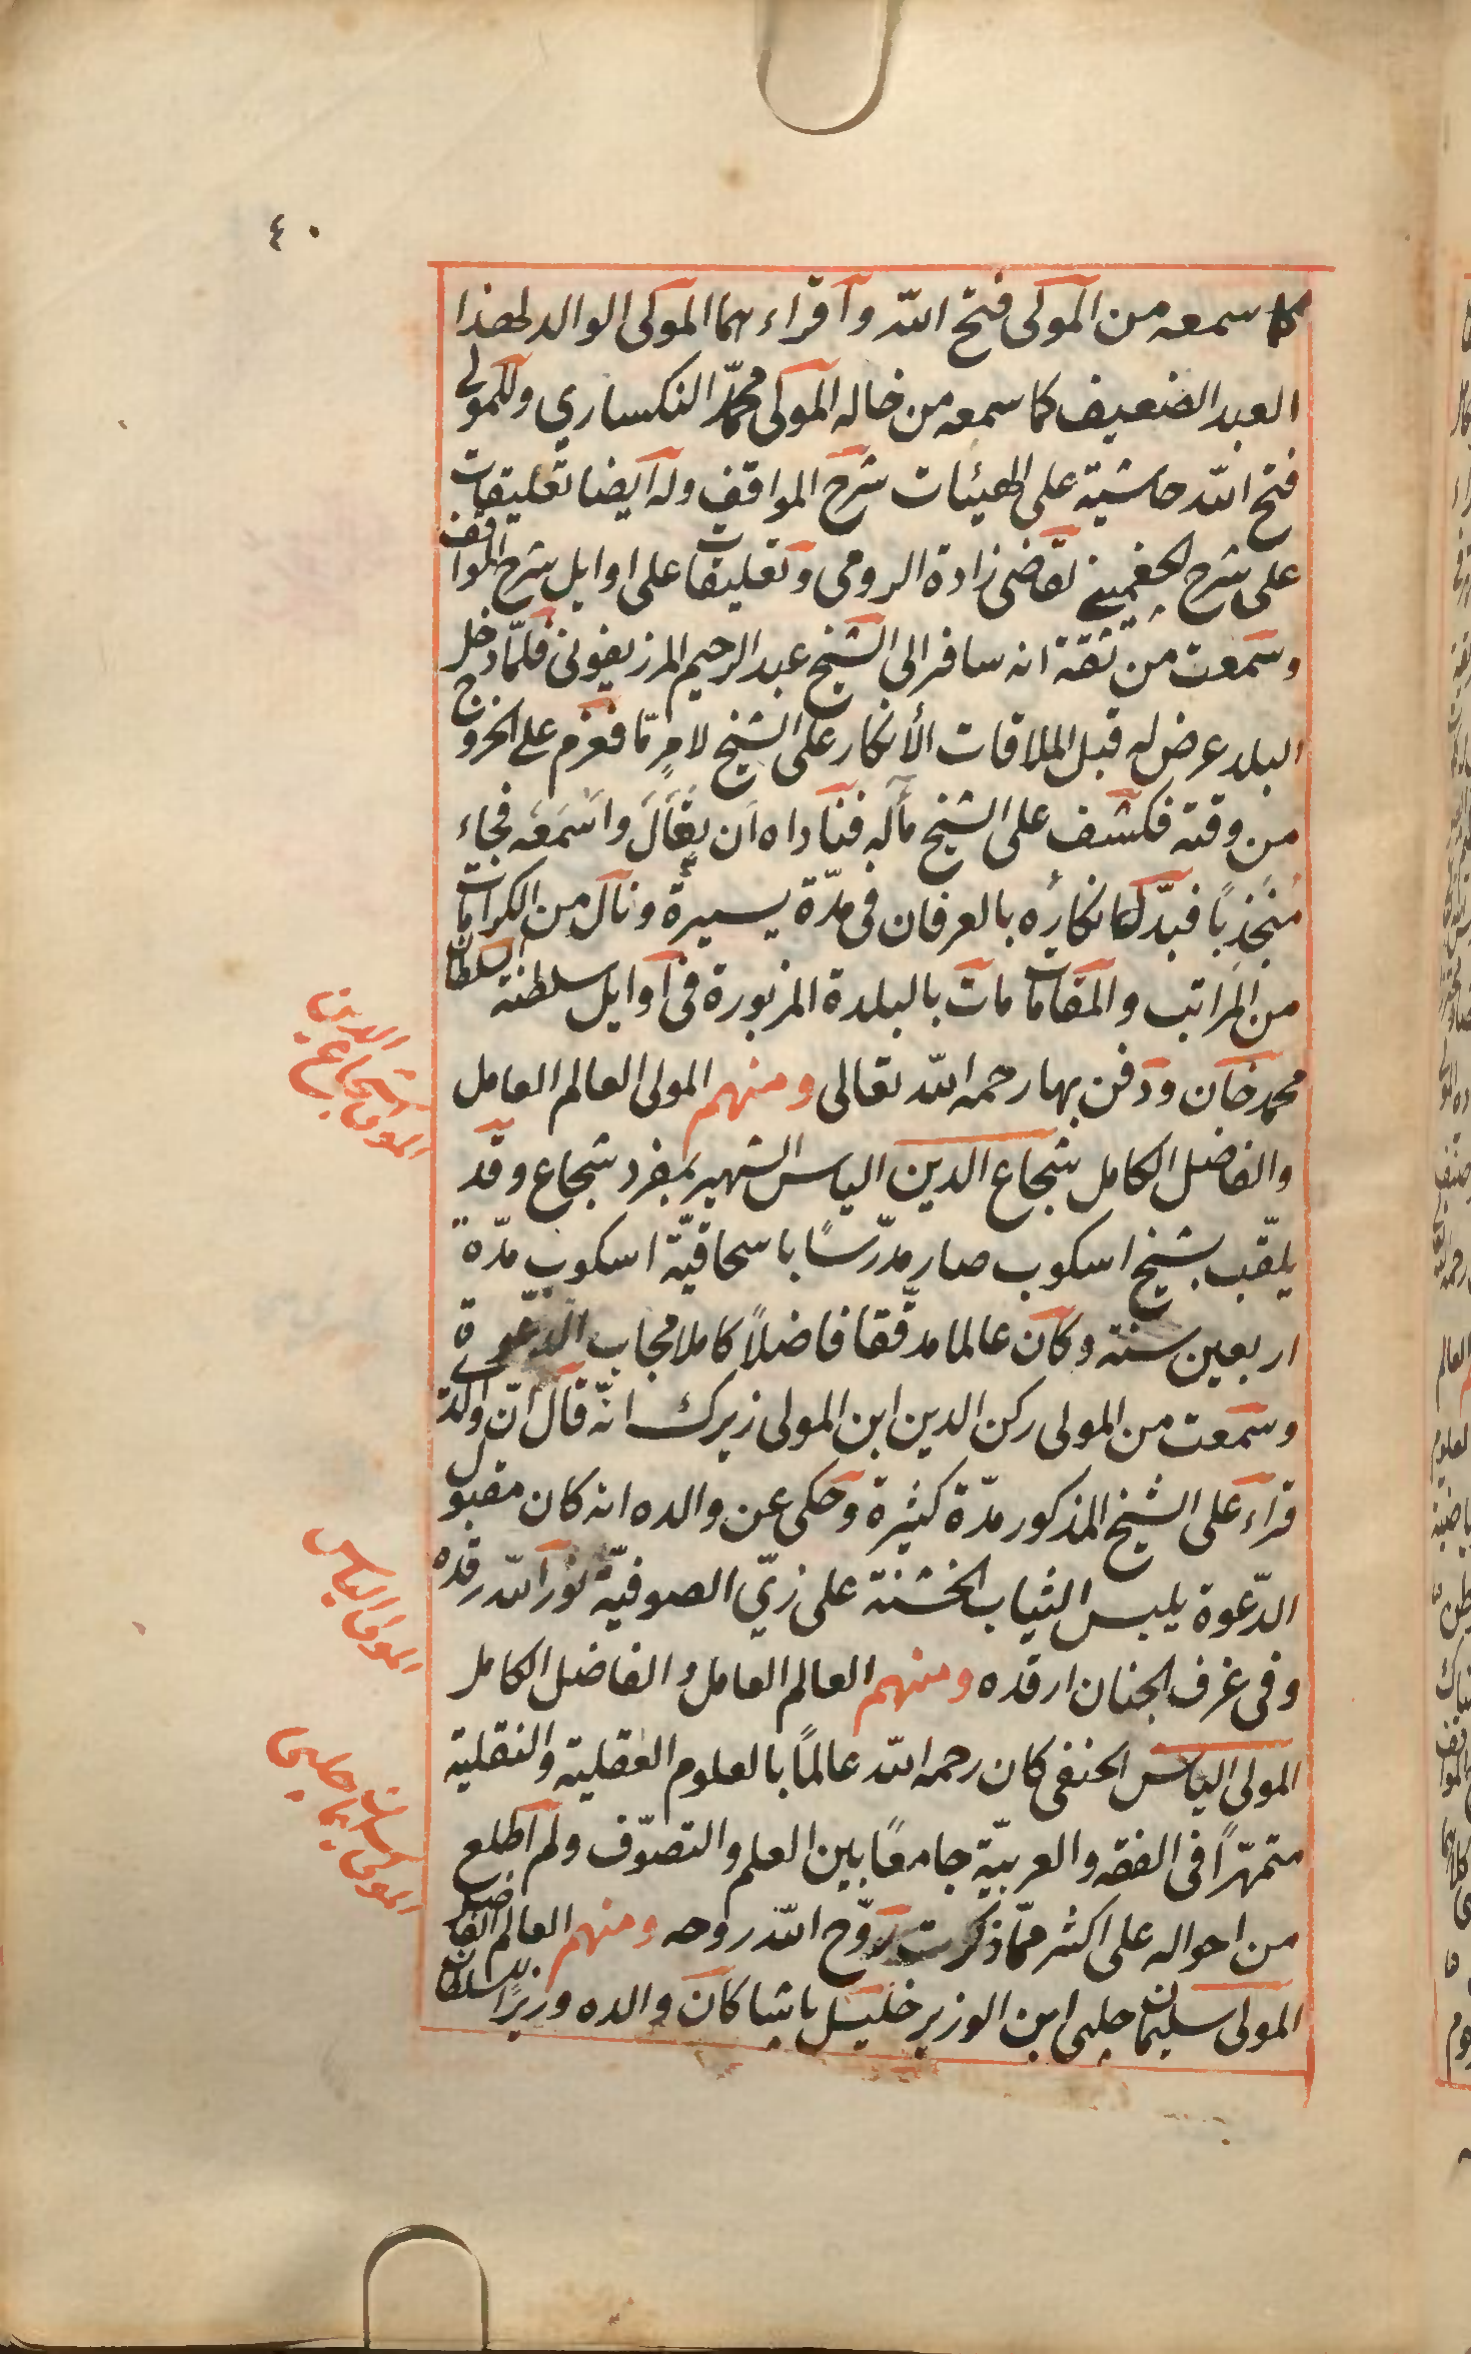 ٤٠
كما سمعه من المولى فتح الله واقراءهما المولى الوالد لهذا
العبد الضعيف كما سمعه من خاله المولى محمّد النكساري وللمولى
فتح الله حاشية على الهيئات شرح المواقف وله ايضا تعليقات
على شرح الجغمينى لقاضى زادة الرومى وتعليقات على اوايل شرح المواقف
وسمعت من ثقة انه سافر الى الشيخ عبد الرحيم المرزيفونى فلمّا دخل
البلد عرض له قبل الملاقات الأنكار على الشيخ لامرٍ مّا فعزم على الخروج
من وقته فكشف على الشيخ مآله فناداه ان تعال واسمعه فجاء
منجذبًا فبدّل انكاره بالعرفان فى مدّة يسيرة ونال من الكرامات
من المراتب والمقامات مات بالبلدة المزبورة فى اوايل سلطنة السلطان
محمد خان ودفن بها رحمه الله تعالى ومنهم المولى العالم العامل
والفاضل الكامل شجاع الدين الياس الشهير بمفرد شجاع وقد
يلقّب بشيخ اسكوب صار مدرّسًا باسحاقيّة اسكوب مدّة
اربعين سنة وكان عالما مدقّقا فاضلاً كاملا مجاب الدّعوة
وسمعت من المولى ركن الدين ابن المولى زيرك انّه قال انّ والدى
قراء على الشيخ المذكور مدّة كثيرة وحكى عن والده انه كان مقبول
الدّعوة يلبس الثياب الخشنة على زيّ الصوفيّة نور الله رقده
وفى غرف الجنان ارقده ومنهم العالم العامل والفاضل الكامل
المولى الياس الحنفى كان رحمه الله عالمًا بالعلوم العقلية والنقلية
متمهّرًا فى الفقه والعربيّة جامعًا بين العلم والتصوّف ولم اطلع
من احواله على اكثر ممّا ذكرت روّح الله روحه ومنهم العالم الفاضل
المولى سليمان جلبى ابن الوزير خليل باشا كان والده وزيرًا للسلطان
المولى شجاع الدين
المولى الياس
المولى سليمان جلبى